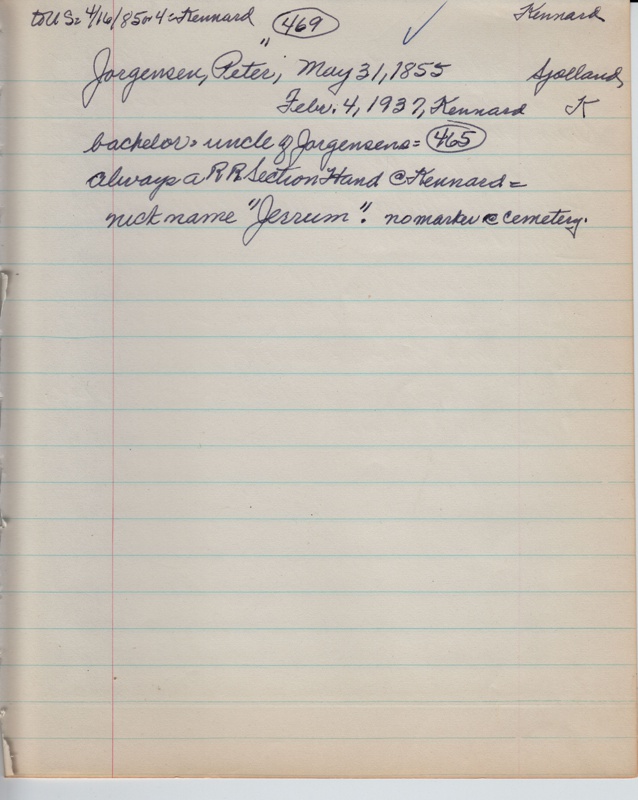 to U S = 4/16/85 or 4 = Kennard (469) ✓ Kennard
"
Jorgensen, Peter; May 31, 1855 Sjolland,
Febr. 4, 1937, Kennard K
bachelor = uncle of Jorgensens = (465)
always a R R Section Hand @ Kennard =
nick name "Jerrum". no marker @ cemetery.